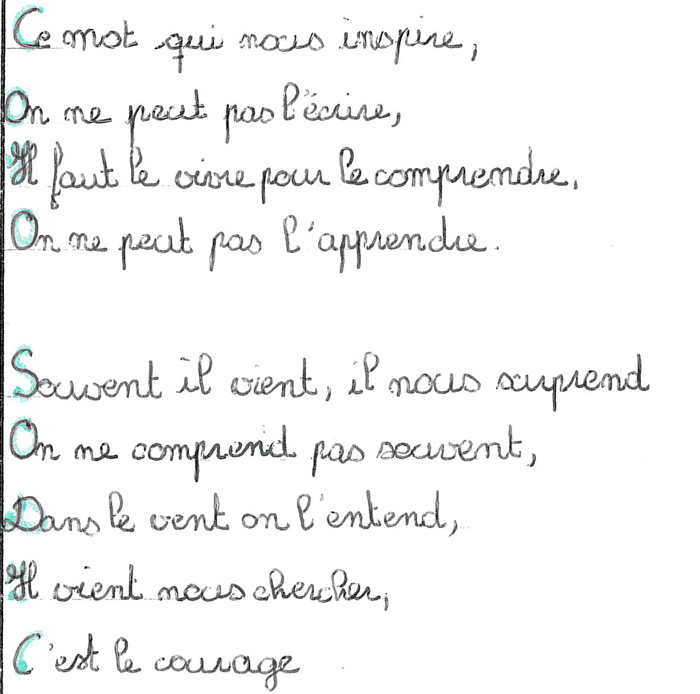 Ce mot qui nous inspire,
On ne peut pas l'écrire,
Il faut le vivre pour le comprendre,
On ne peut pas l'apprendre.
Souvent il vient, il nous suprend
On ne comprend pas souvent,
Dans le vent on l'entend,
Il vient nous chercher,
C'est le courage